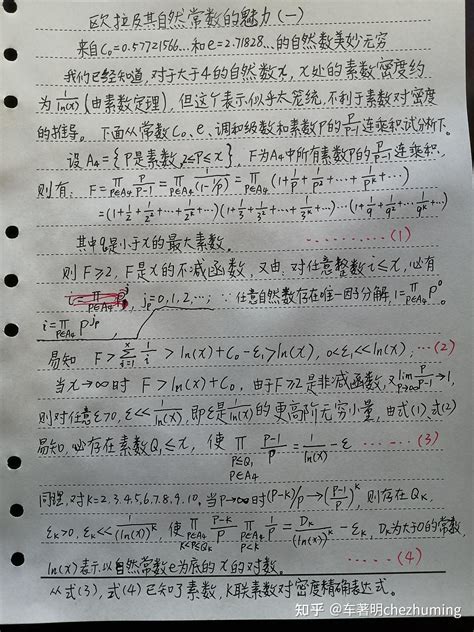 欧拉及其自然常数的魅力(一)
来自C₀=0.57721566…和e=2.71828…的自然数美妙无穷
我们已经知道,对于大于4的自然数x,x处的素数密度约
为1/ln(x)(由素数定理),但这个表示似乎太笼统,不利于素数对密度
的推导。下面从常数C₀、e、调和级数和素数P的P/(P-1)连乘积试分析下。
设A₄={P是素数,2≤P≤x},F为A₄中所有素数P的P/(P-1)连乘积,
则有: F=∏(P∈A₄) P/(P-1)=∏(P∈A₄) 1/(1-1/P)=∏(P∈A₄)(1+1/P+1/P²+…+1/Pᵏ+…)
=(1+1/2+1/2²+…+1/2ᵏ+…)(1+1/3+1/3²+…+1/3ᵏ+…)…(1+1/q+1/q²+…1/qᵏ+…)
其中q是小于x的最大素数。 ………(1)
则F≥2,F是x的不减函数,又由:对任意整数i≤x,必有
i=∏(P∈A₄) P^jp, j=0,1,2,…; ∵任意自然数存在唯一因子分解,1=∏(P∈A₄) P⁰。
易知 F>∑(i=1→x) 1/i>ln(x)+C₀-ε₁>ln(x), 0<ε₁<<ln(x); …(2)
当x→∞时 F>ln(x)+C₀, 由于F≥2是非减函数,又lim(P→∞) P/(P-1)→1,
则对任意ε>0, ε<<1/ln(x),即ε是1/ln(x)的更高阶无穷小量,由式(1),式(2)
易知,必存在素数Q₁≤x,使∏(P≤Q₁, P∈A₄) (P-1)/P=1/ln(x)-ε ……(3)
同理,对K=2,3,4,5,6,7,8,9,10,当P→∞时(P-K)/P→((P-1)/P)ᵏ,则存在Qₖ,
εₖ>0, εₖ<<1/(ln(x))ᵏ,使∏(P∈A₄, K<P≤Qₖ) (P-K)/P ∏(P∈A₄, P<K) 1/P=Dₖ/(ln(x))ᵏ-εₖ, Dₖ为大于0的常数,
……(4)
ln(x)表示以自然常数e为底的x的对数。
从式(3),式(4)已知了素数,K联素数对密度精确表达式。
知乎 @车著明chezhuming